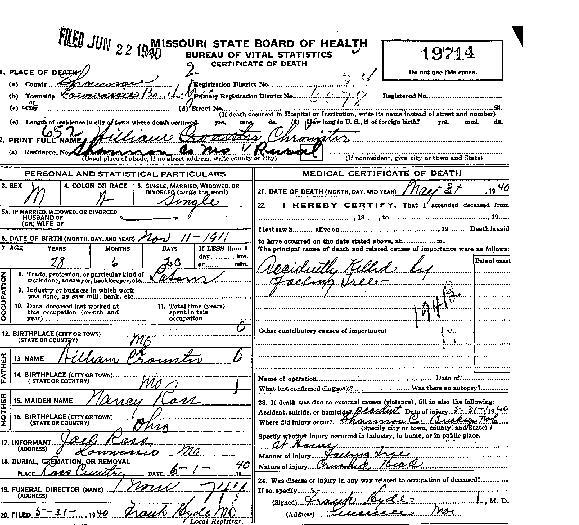 FILED JUN 22 1940
MISSOURI STATE BOARD OF HEALTH
BUREAU OF VITAL STATISTICS
CERTIFICATE OF DEATH
19714
Do not use this space.
1. PLACE OF DEATH
(a) County Shannon Registration District No.
(b) Township Primary Registration District No. Registered No.
(c) City (d) Street No. St.
(If death occurred in Hospital or Institution, write its name instead of street and number)
(e) Length of residence in city or town where death occurred yrs. mos. ds. (f) How long in U. S., if of foreign birth? yrs. mos. ds.
2. PRINT FULL NAME William Chronister
(a) Residence, No. Shannon Co Mo Rural
(Usual place of abode, if no street address, write county or city) (If nonresident, give city or town and State)
PERSONAL AND STATISTICAL PARTICULARS
3. SEX M
4. COLOR OR RACE W
5. SINGLE, MARRIED, WIDOWED, OR DIVORCED (write the word) Single
5A. IF MARRIED, WIDOWED, OR DIVORCED
HUSBAND OF
(OR) WIFE OF
6. DATE OF BIRTH (MONTH, DAY, AND YEAR) Nov 11-1911
7. AGE YEARS 28 MONTHS 6 DAYS 20 If LESS than 1 day, hrs. or min.
OCCUPATION
8. Trade, profession, or particular kind of work done, as sawyer, bookkeeper, etc. Labor
9. Industry or business in which work was done, as saw mill, bank, etc.
10. Date deceased last worked at this occupation (month and year)
11. Total time (years) spent in this occupation
12. BIRTHPLACE (CITY OR TOWN) (STATE OR COUNTRY) Mo
FATHER
13. NAME William
14. BIRTHPLACE (CITY OR TOWN) (STATE OR COUNTRY) Mo
MOTHER
15. MAIDEN NAME Nancy Ross
16. BIRTHPLACE (CITY OR TOWN) (STATE OR COUNTRY) Ohio
17. INFORMANT Ross
(ADDRESS) Mo
18. BURIAL, CREMATION, OR REMOVAL
PLACE DATE 6-1- 1940
19. FUNERAL DIRECTOR (NAME) None
(ADDRESS)
20. FILED 5-31- 1940 Frank Hyde MD
Local Registrar.
MEDICAL CERTIFICATE OF DEATH
21. DATE OF DEATH (MONTH, DAY, AND YEAR) May 31 1940
22. I HEREBY CERTIFY, That I attended deceased from
, 19 , to , 19
I last saw h alive on , 19 Death is said
to have occurred on the date stated above, at m.
The principal cause of death and related causes of importance were as follows:
Date of onset
Accidently Killed by
falling tree
Other contributory causes of importance
Name of operation Date of
What test confirmed diagnosis? Was there an autopsy?
23. If death was due to external causes (violence), fill in also the following:
Accident, suicide, or homicide? accident Date of injury 5-31-1940
Where did injury occur? Shannon Co
(Specify city or town, county, and State)
Specify whether injury occurred in industry, in home, or in public place.
At home
Manner of injury falling tree
Nature of injury Crushed Head
24. Was disease or injury in any way related to occupation of deceased?
If so, specify
(Signed) Frank Hyde , M. D.
(Address) Mo